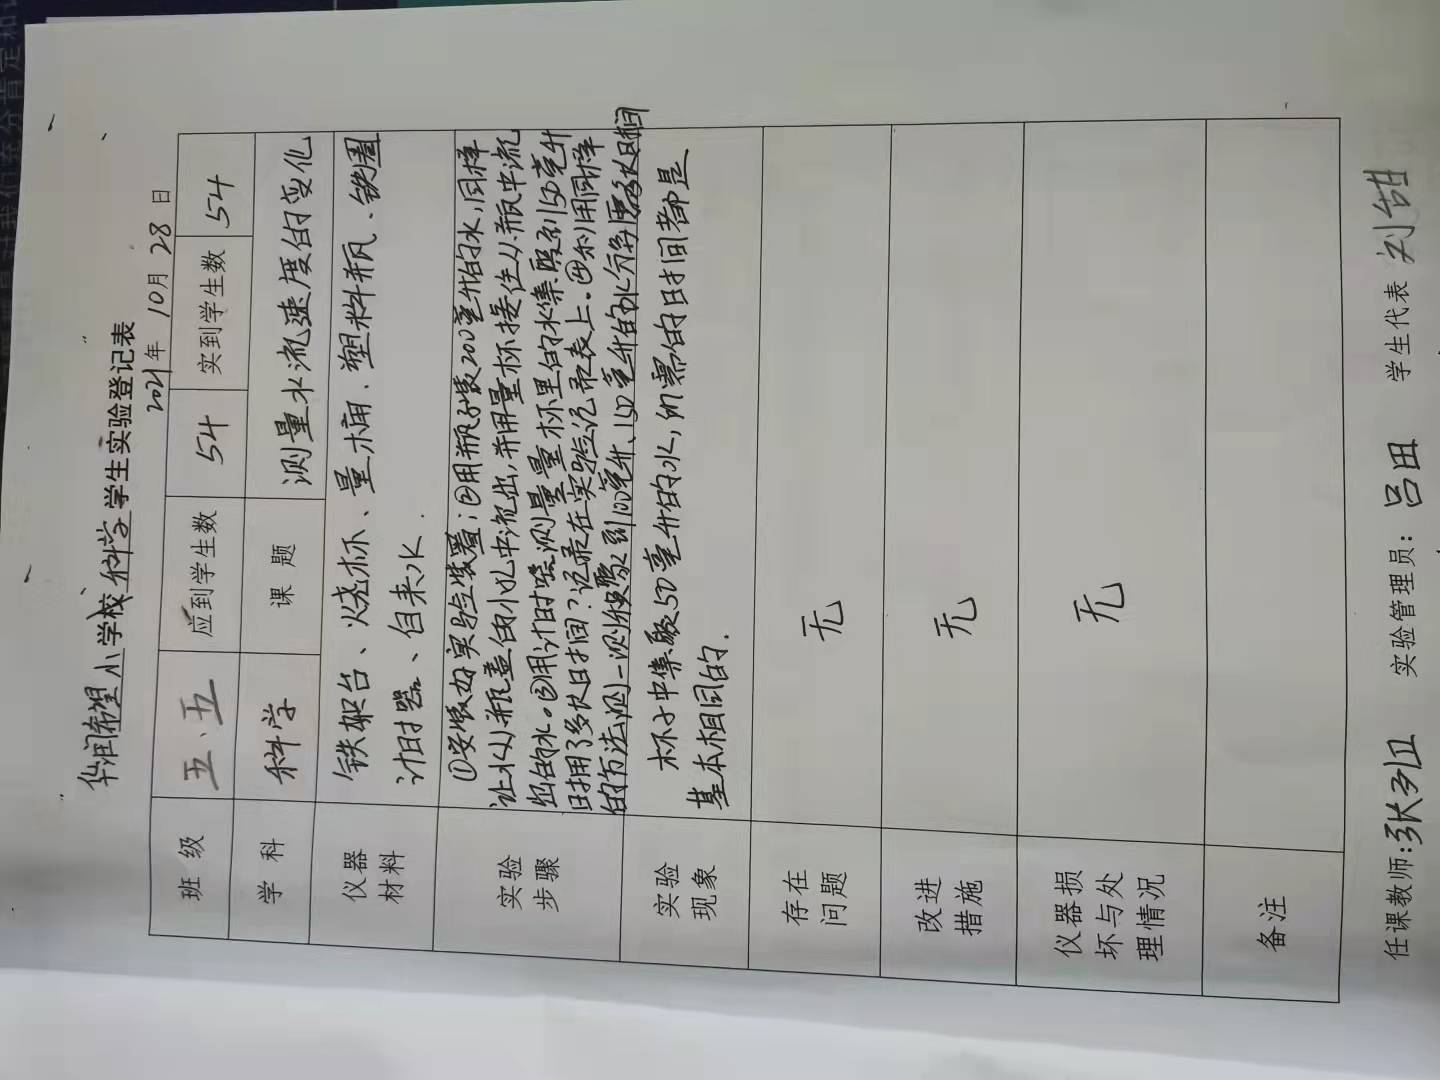 华润希望小学校科学学生实验登记表
2021年 10月 28日
班 级 五.五 应到学生数 54 实到学生数 54
学 科 科学 课 题 测量水流速度的变化
仪器材料 铁架台、烧杯、量桶、塑料瓶、铁圈
计时器、自来水.
实验步骤 ①安装好实验装置;②用瓶子装200毫升的水,同样
让水从瓶盖的小孔中流出,并用量杯接住从瓶中流
出的水。③用计时器测量量杯里的水集聚到50毫升
时用了多长时间?记录在实验记录表上.④利用同样
的方法测一测积聚到100毫升、150毫升的水分别要多长时间
实验现象 杯子中集聚50毫升的水,所需的时间都是
基本相同的.
存在问题 无
改进措施 无
仪器损坏与处理情况 无
备注
任课教师: 实验管理员:吕田 学生代表 刘甜